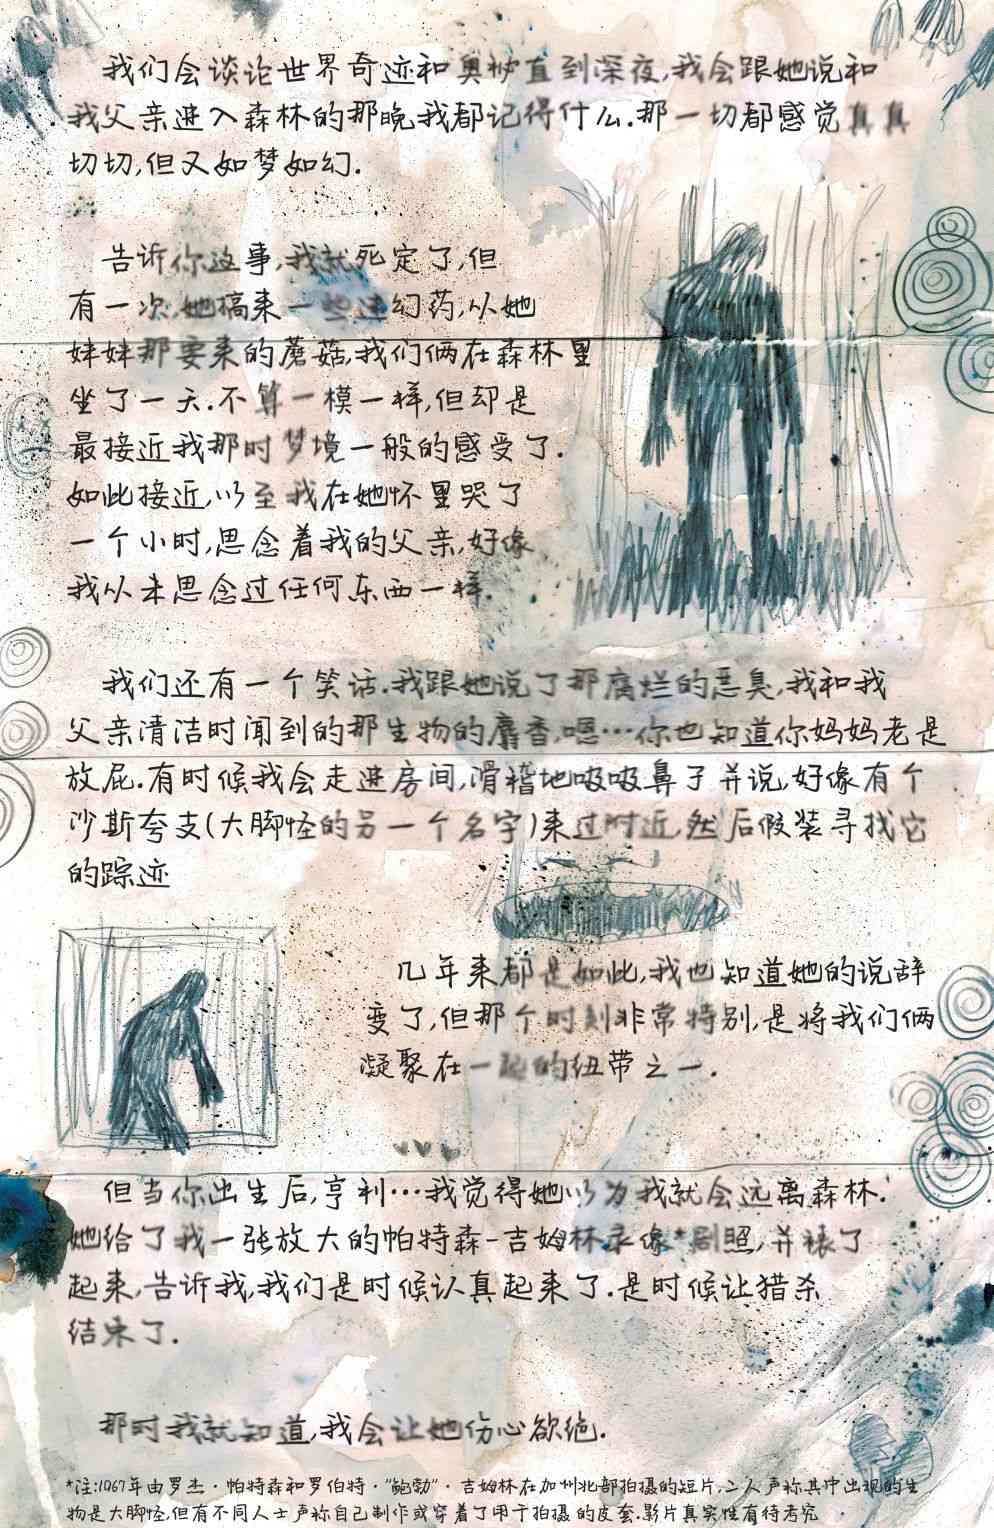 我们会谈论世界奇迹和奥秘直到深夜,我会跟她说和
我父亲进入森林的那晚我都记得什么.那一切都感觉真真
切切,但又如梦如幻.
告诉你这事,我就死定了,但
有一次,她搞来一些迷幻药,从她
妹妹那要来的蘑菇,我们俩在森林里
坐了一天.不算一模一样,但却是
最接近我那时梦境一般的感受了.
如此接近,以至我在她怀里哭了
一个小时,思念着我的父亲,好像
我从未思念过任何东西一样.
我们还有一个笑话.我跟她说了那腐烂的恶臭,我和我
父亲清洁时闻到的那生物的麝香,嗯…你也知道你妈妈老是
放屁.有时候我会走进房间,滑稽地吸吸鼻子并说,好像有个
沙斯夸支(大脚怪的另一个名字)来过附近,然后假装寻找它
的踪迹
几年来都是如此,我也知道她的说辞
变了,但那个时刻非常特别,是将我们俩
凝聚在一起的纽带之一.
但当你出生后,亨利…我觉得她以为我就会远离森林.
她给了我一张放大的帕特森-吉姆林录像*剧照,并裱了
起来,告诉我,我们是时候认真起来了.是时候让猎杀
结束了.
那时我就知道,我会让她伤心欲绝.
*注:1967年由罗杰·帕特森和罗伯特·“鲍勃”·吉姆林在加州北部拍摄的短片,二人声称其中出现的生
物是大脚怪,但有不同人士声称自己制作或穿着了用于拍摄的皮套.影片真实性有待考究